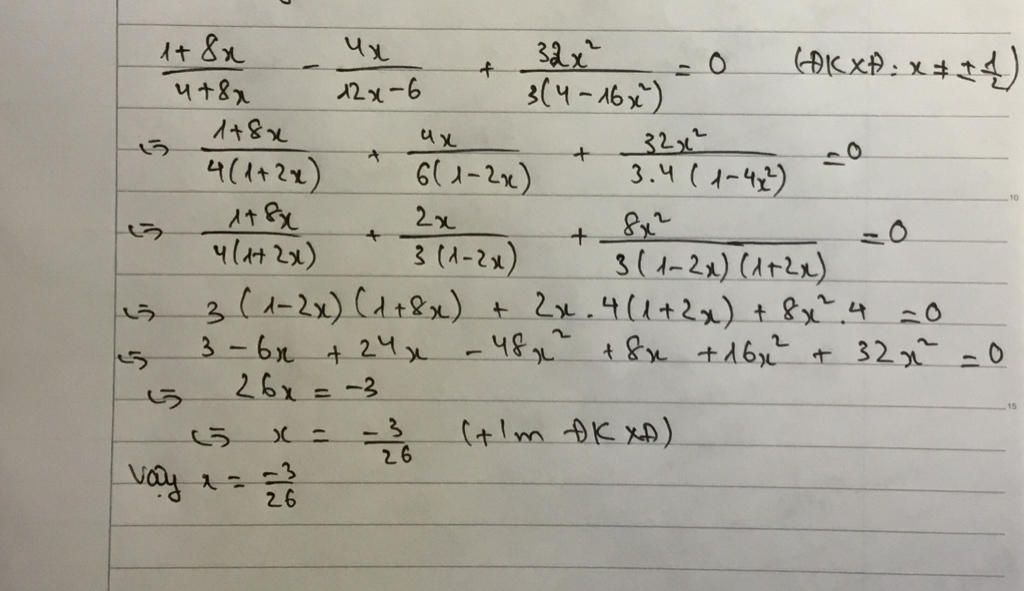 (1+8x)/(4+8x) - 4x/(12x-6) + 32x²/(3(4-16x²)) = 0 (ĐKXĐ: x ≠ ± 1/2)
⇔ (1+8x)/(4(1+2x)) + 4x/(6(1-2x)) + 32x²/(3.4(1-4x²)) = 0
⇔ (1+8x)/(4(1+2x)) + 2x/(3(1-2x)) + 8x²/(3(1-2x)(1+2x)) = 0
⇔ 3(1-2x)(1+8x) + 2x.4(1+2x) + 8x².4 = 0
⇔ 3 - 6x + 24x - 48x² + 8x + 16x² + 32x² = 0
⇔ 26x = -3
⇔ x = -3/26 (t/m ĐKXĐ)
Vậy x = -3/26
10
15